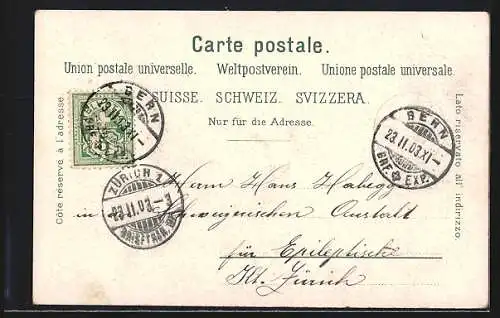 Carte postale.
Union postale universelle. Weltpostverein. Unione postale universale.
SUISSE. SCHWEIZ. SVIZZERA.
Nur für die Adresse.
Côté réservé à l'adresse.
Lato riservato all' indirizzo.
BERN
23.II.03.XI
BERN
23.II.03.XI
BRF. EXP.
ZÜRICH 1
23.II.03
BRIEFTRÄG.
Herrn Hans Habegg
in Schweizerischen Anstalt
für Epileptische
Kt. Zürich